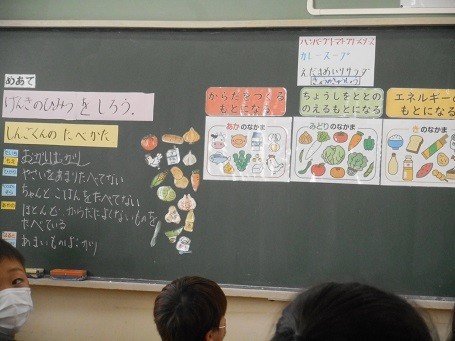 めあて
げんきのひみつをしろう。
しんごくんのたべかた
おかしばかり
やさいをあまりたべてない
ちゃんとごはんをたべてない
ほとんど、からだによくないものを
たべている
あまいものばかり
カレースープ
えだまめいりサラダ
からだをつくる
もとになる
ちょうしをととの
のえるもとになる
エネルギーの
もとになる
あかのなかま
みどりのなかま
きのなかま